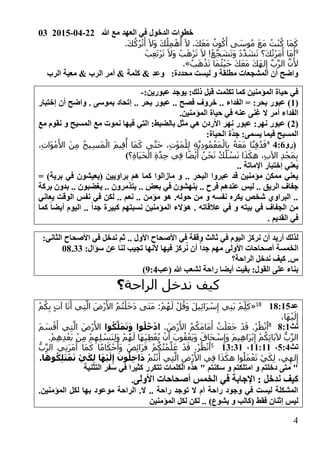 خطوات الدخول في العهد مع الله    22-04-2015    03
كَمَا كُنْتُ مَعَ مُوسَى أَكُونُ مَعَكَ. لاَ أُهْمِلُكَ وَلاَ أَتْرُكُكَ.
9أَمَا أَمَرْتُكَ؟ تَشَدَّدْ وَتَشَجَّعْ! لاَ تَرْهَبْ وَلاَ تَرْتَعِبْ
لأَنَّ الرَّبَّ إِلهَكَ مَعَكَ حَيْثُمَا تَذْهَبُ».
واضح أن المشجعات مطلقة و ليست محددة: وعد & كلمة & أمر الرب & معية الرب
في حياة المؤمنين كما تكلمت قبل ذلك: يوجد عبورين:-
(1) عبور بحر: = الفداء .. خروف فصح .. عبور بحر .. إتحاد بموسى . واضح أن إختبار
الفداء أمر لا غنى عنه في حياة المؤمنين.
(2) عبور نهر: عبور نهر الأردن هي مثل بالضبط: التي فيها نموت مع المسيح و نقوم مع
المسيح فيما يسمى: جدّة الحياة:
(رو4:6) فَدُفِنَّا مَعَهُ بِالْمَعْمُودِيَّةِ لِلْمَوْتِ، حَتَّى كَمَا أُقِيمَ الْمَسِيحُ مِنَ الأَمْوَاتِ،
بِمَجْدِ الآبِ، هكَذَا نَسْلُكُ نَحْنُ أَيْضًا فِي جِدَّةِ الْحَيَاةِ؟)
يعني إختبار الإماتة ..
يعني ممكن مؤمنين قد عبروا البحر .. و مازالوا كما هم براويين (يعيشون في برية) =
جفاف الريق .. ليس عندهم فرح .. ينهشون في بعض .. يتذمرون .. يغضبون .. بدون بركة
.. البراوي شخص يكره نفسه و من حوله. هو مؤمن .. نعم .. لكن في نفس الوقت يعاني
من الجفاف في بيته و في علاقاته . هؤلاء المؤمنين نسبتهم كبيرة جداً .. اليوم أيضاً كما
في القديم .
لذلك أريد أن نركز اليوم في ثالث وقفة في الأصحاح الأول .. ثم ندخل في الأصحاح الثاني:
الخمسة أصحاحات الأولى مهم جداً أن نركز فيها لأنها تجيب لنا عن سؤال: 08.33
س. كيف ندخل الراحة؟
بناء على القول: بقيت أيضا راحة لشعب الله (عب9:4)
كيف ندخل الراحة؟
عد18:15 18«كَلِّمْ بَنِي إِسْرَائِيلَ وَقُلْ لَهُمْ: مَتَى دَخَلْتُمُ الأَرْضَ الَّتِي أَنَا آتٍ بِكُمْ
إِلَيْهَا،
تث8:1 8اُنْظُرْ. قَدْ جَعَلْتُ أَمَامَكُمُ الأَرْضَ. ادْخُلُوا وَتَمَلَّكُوا الأَرْضَ الَّتِي أَقْسَمَ
الرَّبُّ لآبَائِكُمْ إِبْرَاهِيمَ وَإِسْحَاقَ وَيَعْقُوبَ أَنْ يُعْطِيَهَا لَهُمْ وَلِنَسْلِهِمْ مِنْ بَعْدِهِمْ.
تث5:4، 11:11، 13:31 5اُنْظُرْ. قَدْ عَلَّمْتُكُمْ فَرَائِضَ وَأَحْكَامًا كَمَا أَمَرَنِي الرَّبُّ
إِلهِي، لِكَيْ تَعْمَلُوا هكَذَا فِي الأَرْضِ الَّتِي أَنْتُمْ دَاخِلُونَ إِلَيْهَا لِكَيْ تَمْتَلِكُوهَا.
" متى دخلتم و امتلكتم و سكنتم " هذه الكلمات تتكرر كثيرا في سفر التثنية
كيف ندخل : الإجابة في الخمس أصحاحات الأولى.
المشكلة ليست في وجود راحة أم لا توجد راحة .. لا. الراحة موعود بها لكل المؤمنين.
ليس إثنان فقط (كالب و يشوع) .. لكن لكل المؤمنين
4